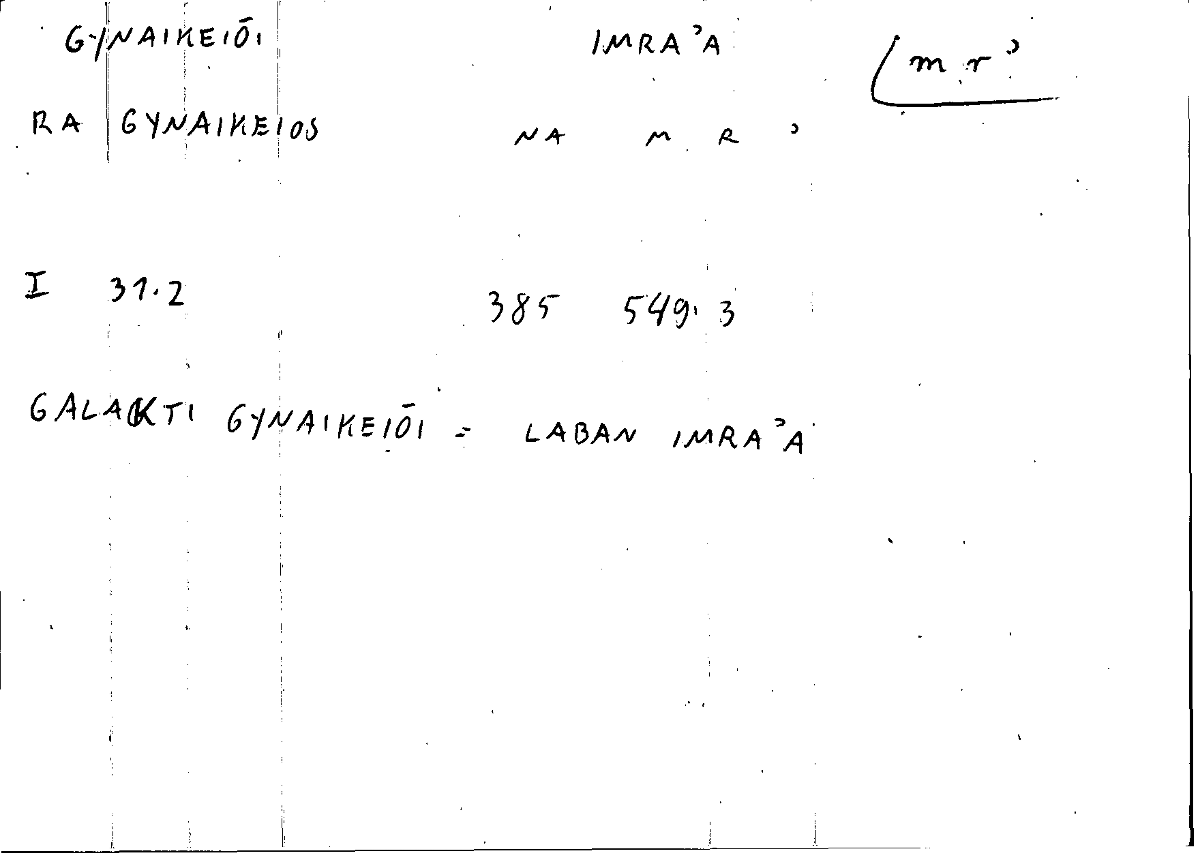 GYNAIKEIŌI IMRAʾA mrʾ
RA GYNAIKEIOS NA M R ʾ
I 31.2 385 549.3
GALAKTI GYNAIKEIŌI = LABAN IMRAʾA